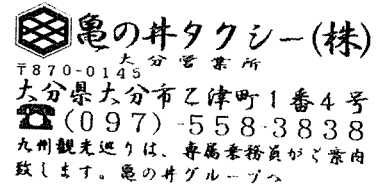 亀の井タクシー(株)
大分営業所
〒870-0145
大分県大分市乙津町1番4号
☎(097)-558-3838
九州観光巡りは、専属乗務員がご案内
致します。亀の井グループへ